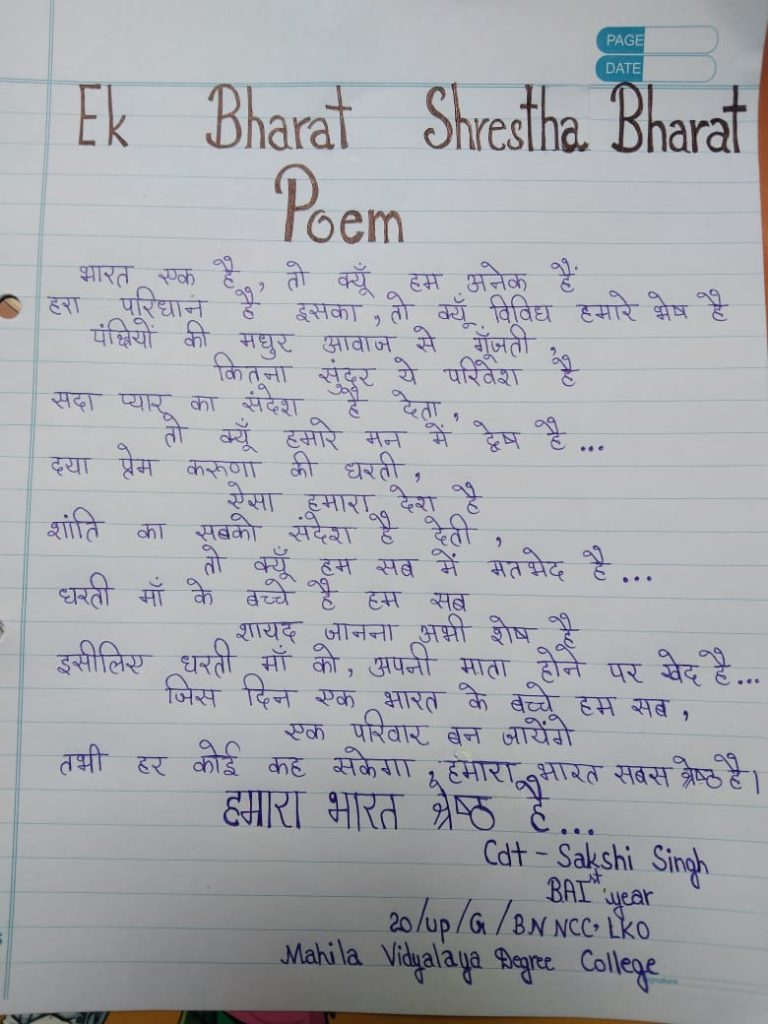 PAGE
DATE
Ek Bharat Shrestha Bharat
Poem
भारत एक है, तो क्यूँ हम अनेक हैं
हरा परिधान है इसका, तो क्यूँ विविध हमारे भेष है
पंक्षियों की मधुर आवाज से गूँजती,
कितना सुंदर ये परिवेश है
सदा प्यार का संदेश है देता,
तो क्यूँ हमारे मन में द्वेष है...
दया प्रेम करुणा की धरती,
ऐसा हमारा देश है
शांति का सबको संदेश है देती,
तो क्यूँ हम सब में मतभेद है...
धरती माँ के बच्चे है हम सब
शायद जानना अभी शेष है
इसीलिए धरती माँ को, अपनी माता होने पर खेद है...
जिस दिन एक भारत के बच्चे हम सब,
एक परिवार बन जायेंगे
तभी हर कोई कह सकेगा, हमारा भारत सबस श्रेष्ठ है।
हमारा भारत श्रेष्ठ है...
Cdt - Sakshi Singh
BA I st year
20/up/G/BN NCC, LKO
Mahila Vidyalaya Degree College